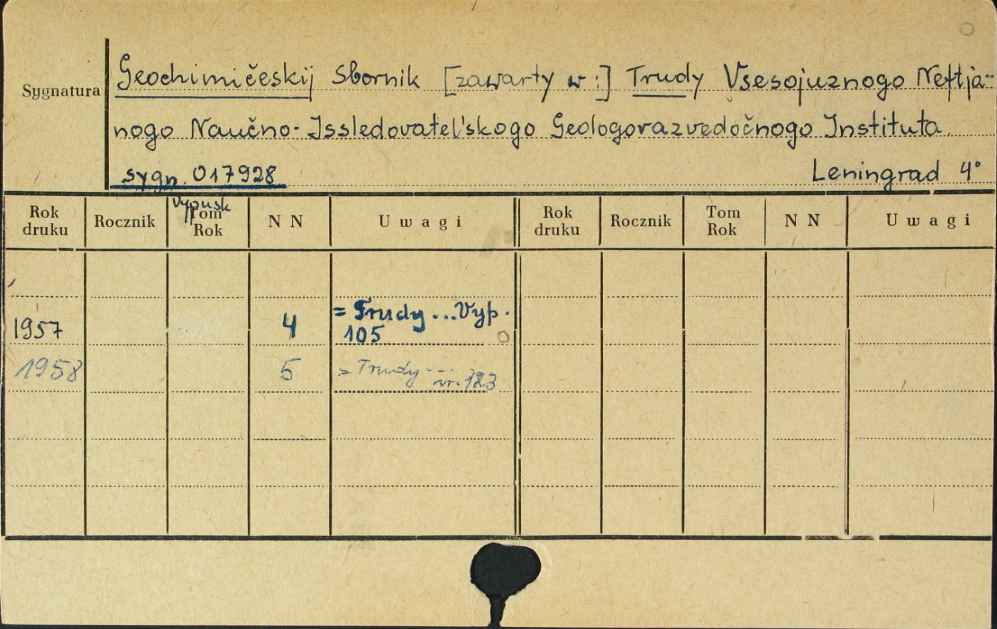 Sygnatura
Geochimičeskij Sbornik [zawarty w:] Trudy Vsesojuznogo Neftja-
nogo Naučno-Issledovatel'skogo Geologorazvedočnogo Instituta
sygn. 017928 Leningrad 4°
Rok druku Rocznik Vypusk Tom Rok N N Uwagi Rok druku Rocznik Tom Rok N N Uwagi
1957 4 = Trudy ... Vyp. 105
1958 5 = Trudy ... nr. 123